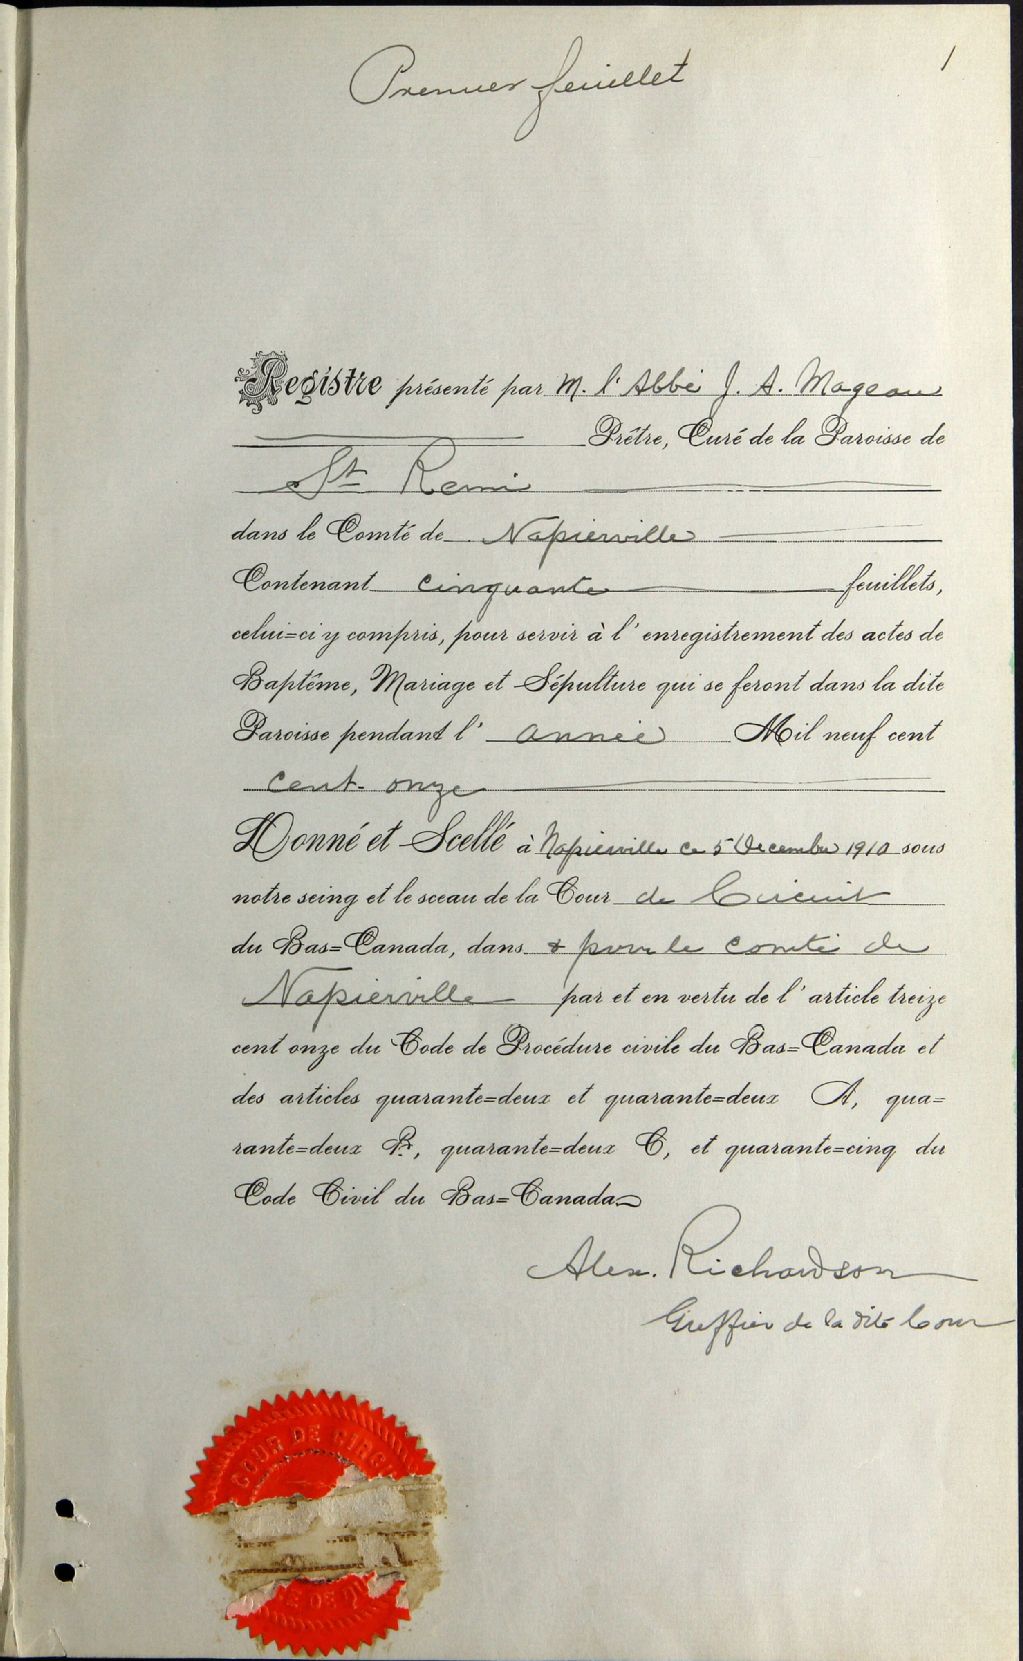 Premier feuillet
1
Registre présenté par M. l'Abbé J. A. Mageau
Prêtre, Curé de la Paroisse de
St Remi
dans le Comté de Napierville
Contenant cinquante feuillets,
celui=ci y compris, pour servir à l'enregistrement des actes de
Baptême, Mariage et Sépulture qui se feront dans la dite
Paroisse pendant l'année Mil neuf cent
cent onze
Donné et Scellé à Napierville ce 5 Decembre 1910 sous
notre seing et le sceau de la Cour de Circuit
du Bas=Canada, dans & pour le comté de
Napierville par et en vertu de l'article treize
cent onze du Code de Procédure civile du Bas=Canada et
des articles quarante=deux et quarante=deux A, qua=
rante=deux B, quarante=deux C, et quarante=cinq du
Code Civil du Bas=Canada
Alex. Richardson
Greffier de la dite Cour
COUR DE CIRC
DE